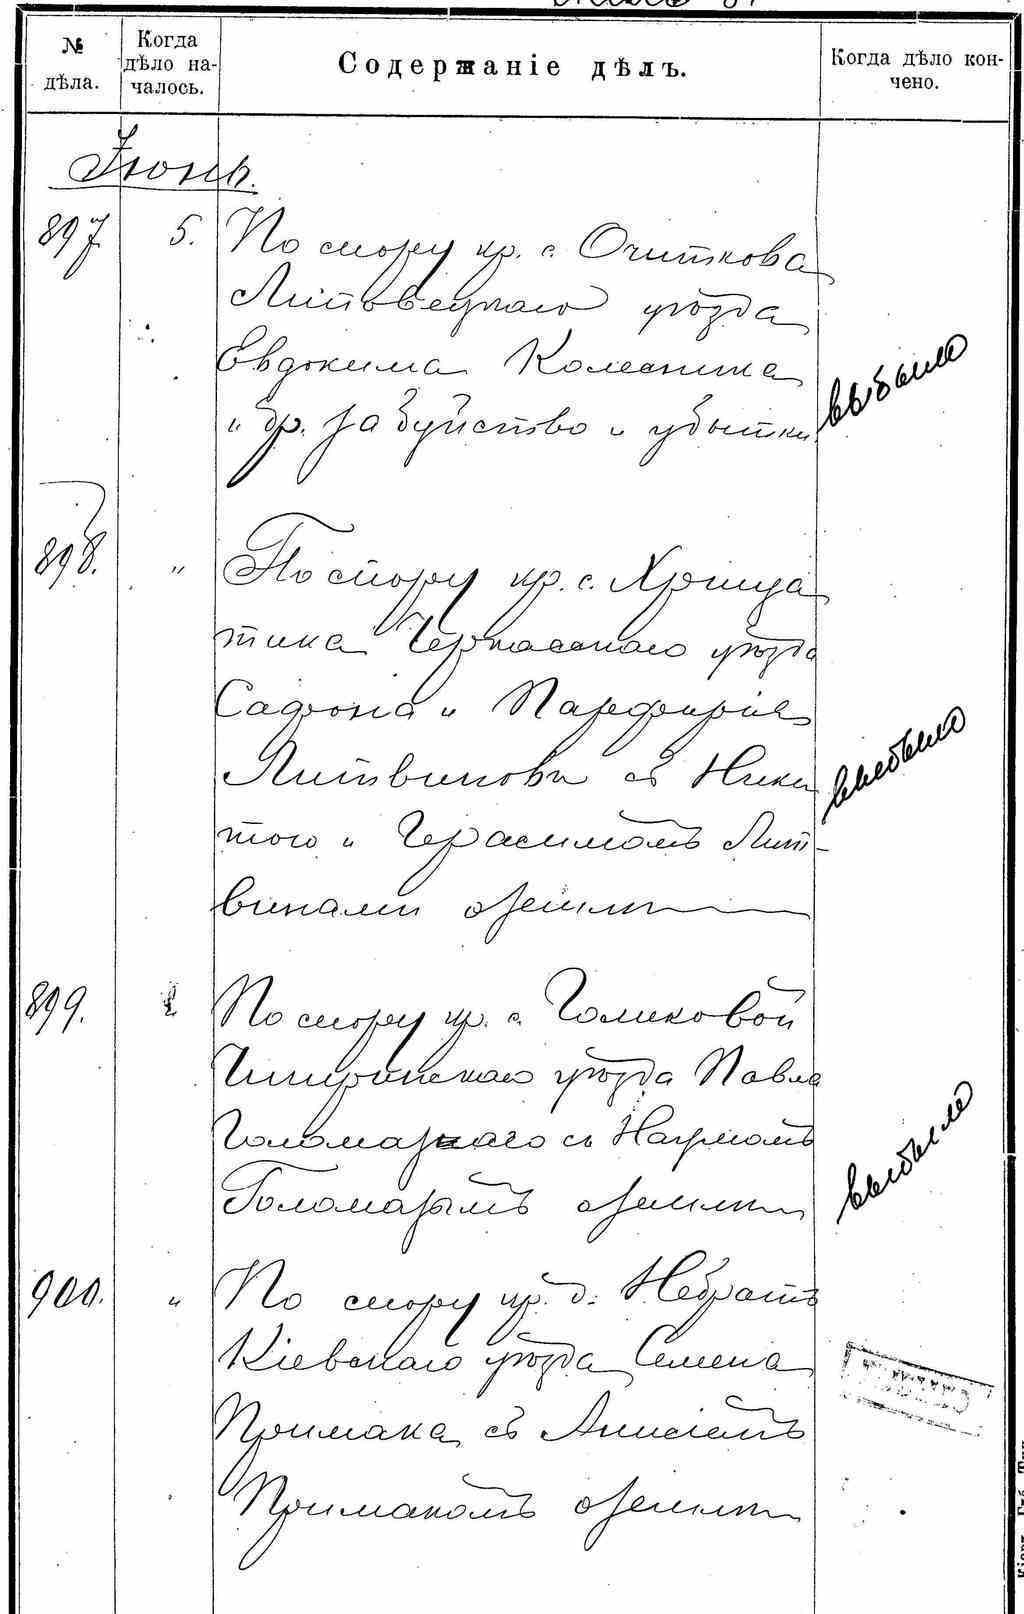 № дѣла.
Когда дѣло на-
чалось.
Содержаніе дѣлъ.
Когда дѣло кон-
чено.
Іюнь.
897 5. По спору кр. с. Очиткова
Липовецкаго уѣзда
Евдокима Колесника
и др. за буйство и убытки
выбыло
898. " По спору кр. с. Хреща
тика Черкасскаго уѣзда
Сафона и Парфирія
Литвиновъ съ Ники
тою и Герасимомъ Лит-
винами о земли
выбыло
899. По спору кр. с. Голиковой
Чигринскаго уѣзда Павла
Голомазнаго съ Наумомъ
Голомазымъ о земли
выбыло
900. " По спору кр. д. Небратъ
Кіевскаго уѣзда Семена
Примака съ Анисіемъ
Примакомъ о земли